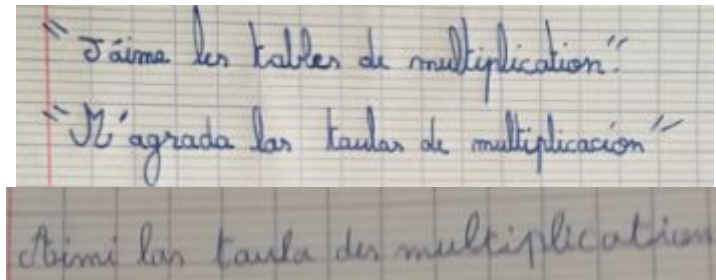 "J'aime les tables de multiplication".
"M'agrada las taulas de multiplicacion"
Aimi las taula des multiplication